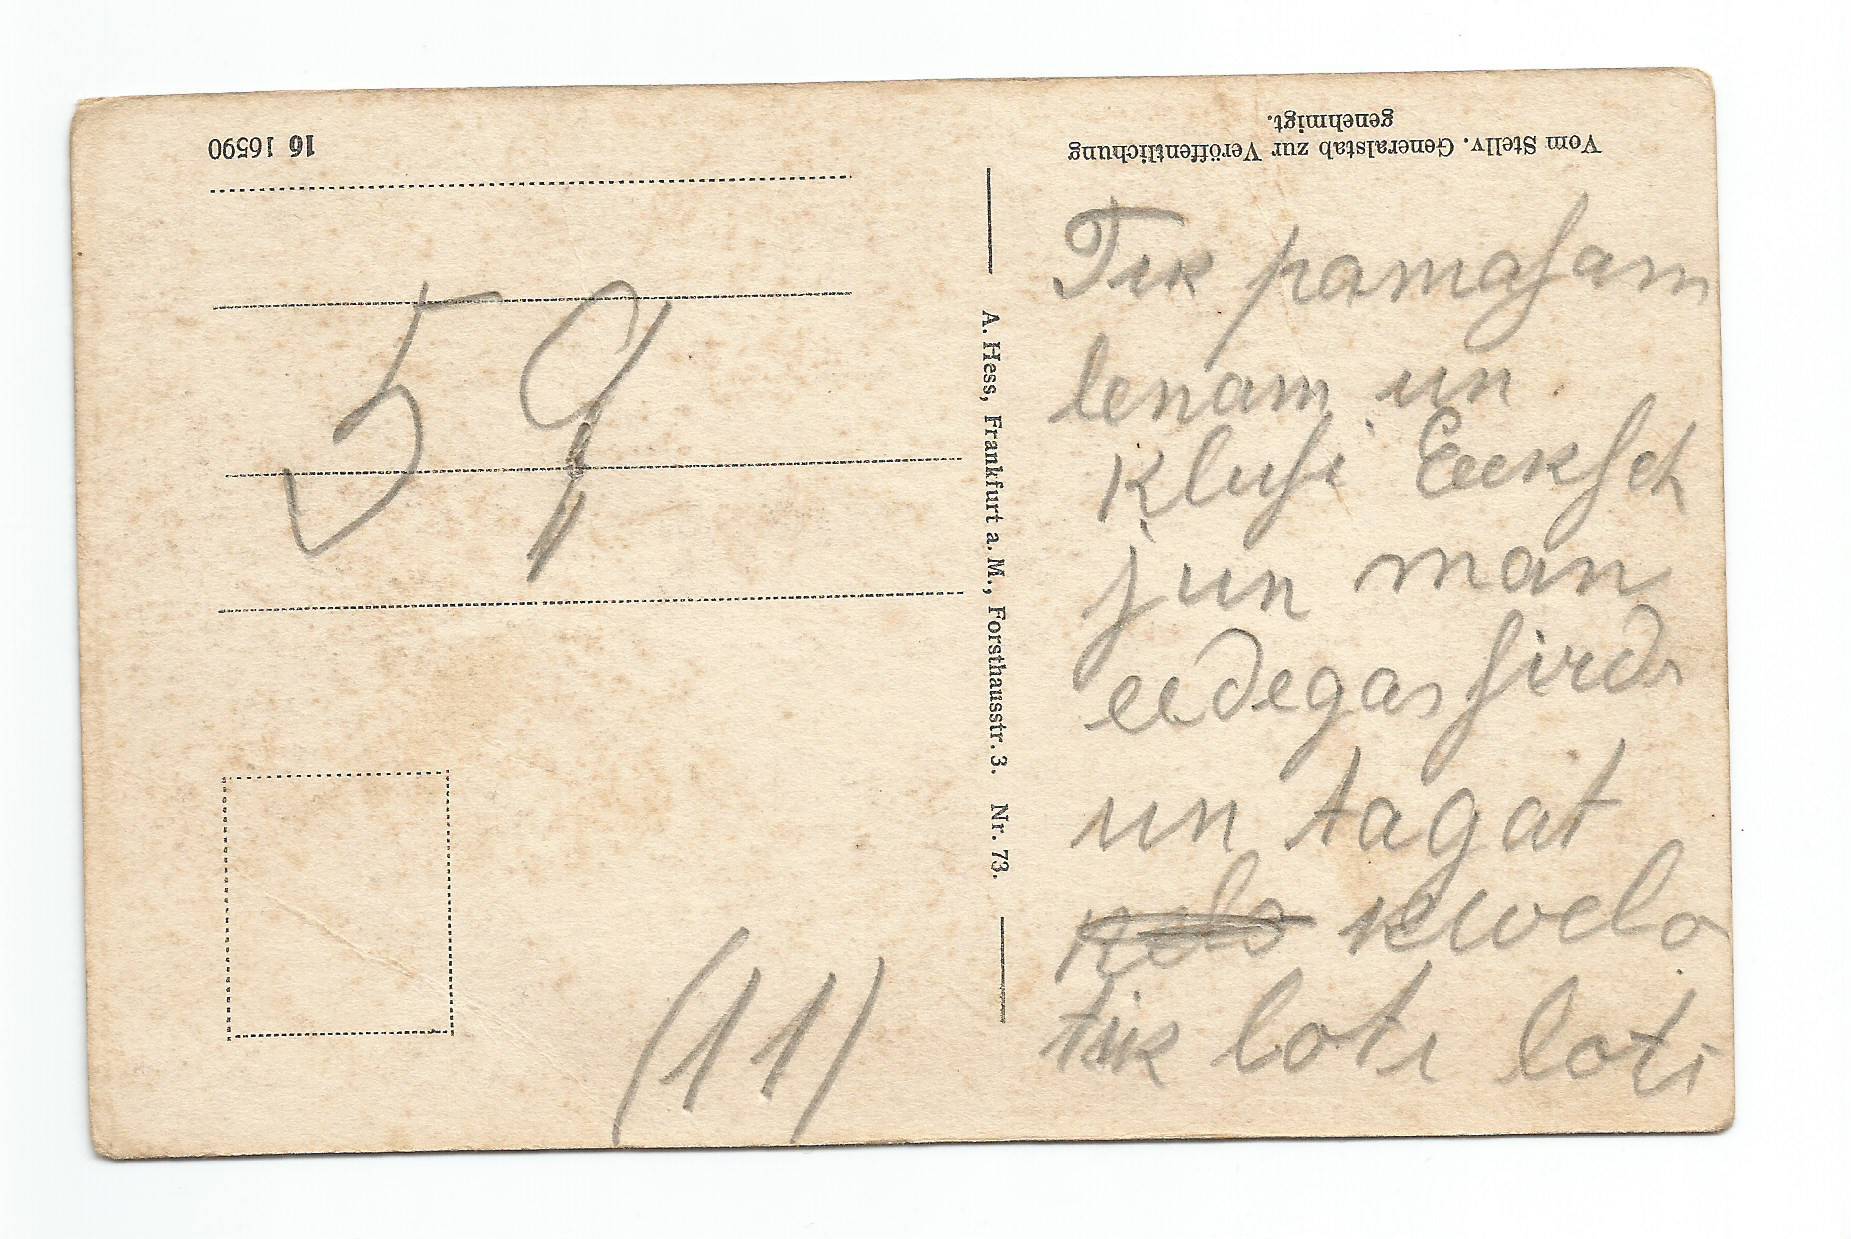 Vom Stellv. Generalstab zur Veröffentlichung
genehmigt.
16 16590
A. Hess, Frankfurt a. M., Forsthausstr. 3. Nr. 73.
59
(11)
Tik pamaſam
lenam un
kluſi Eeekſch
jun man
eedegas ſirds
un tagat
kwelo
tik loti loti